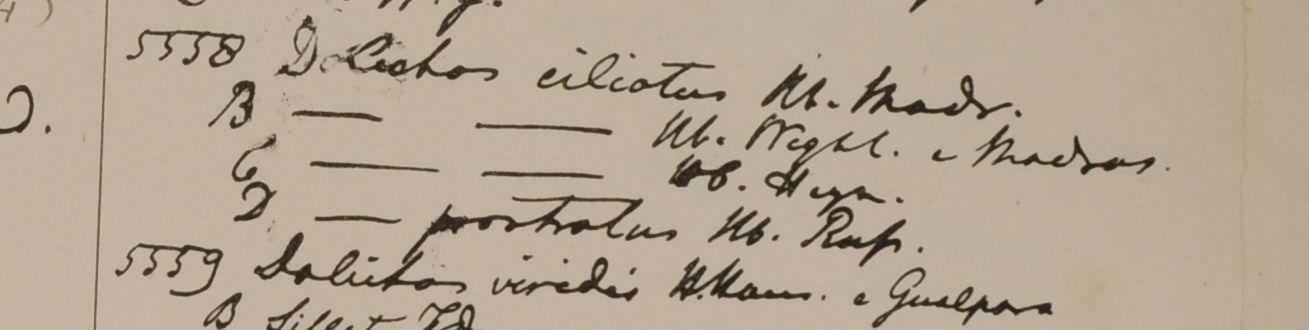 5558 Dolichos ciliatus Hb. Madr.
B — — Hb. Wight. e Madras.
C — — Hb. Heyn.
D — prostratus Hb. Rufs.
5559 Dolichos viridis H. Ham. e Gualpara
B Sillet